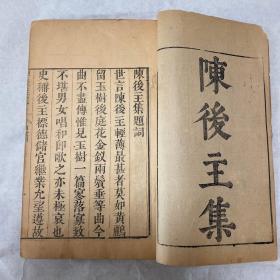 陳後主集
陳後主集題詞
世言陳後主輕薄最甚者莫如黃鸝
留玉樹後庭花金釵兩鬢垂等曲今
曲不盡傳惟見玉樹一篇寥落寡致
不堪男女唱和即歌之亦未極哀也
史稱後主標德儲宮繼業允望遵故